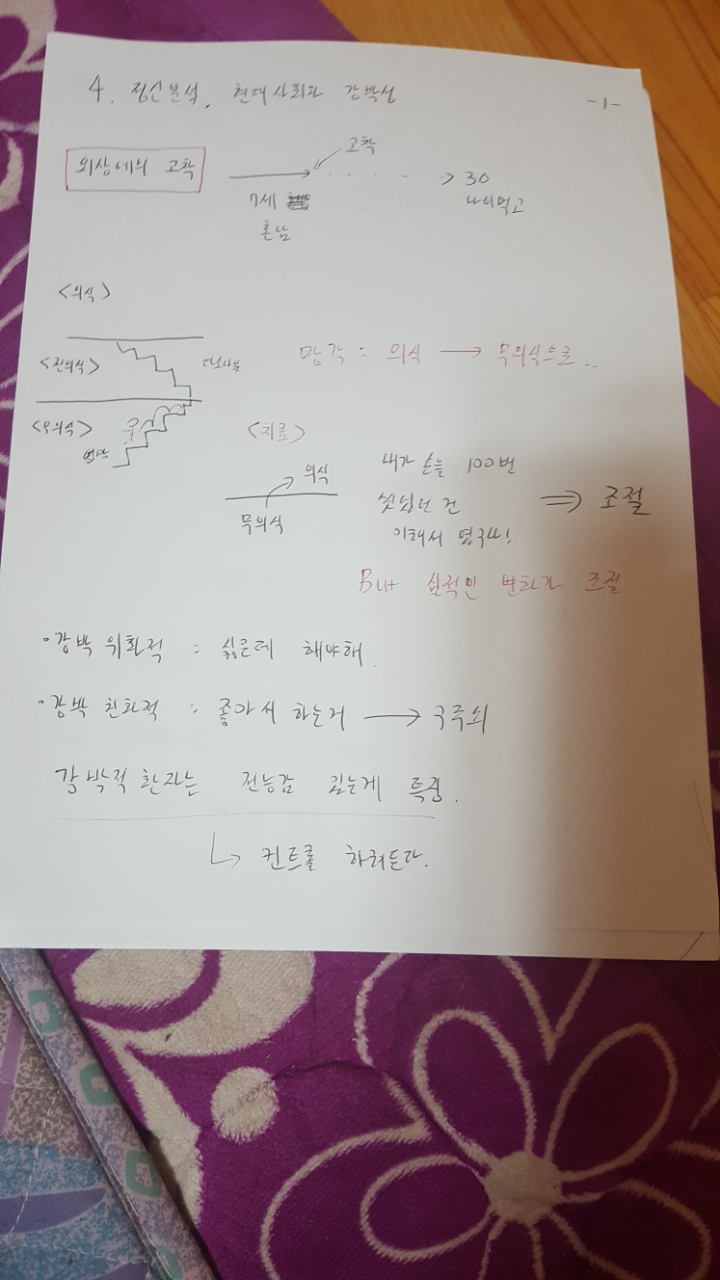 4. 정신분석, 현대사회과 강박성
-1-
외상에의 고착
고착
7세
혼남
→ 30
나이먹고
<의식>
<전의식>
<무의식>
망각 : 의식 → 무의식으로..
<치료>
의식
무의식
내가 손을 100번
씻었던 건
이래서 였구나!
⇒ 조절
But 심적인 변화가 조절
·강박 위화적 : 싫은데 해야해.
·강박 친화적 : 좋아서 하는거 →
강박적 환자는 전능감 있는게 특징.
↳ 컨트롤 하려든다.